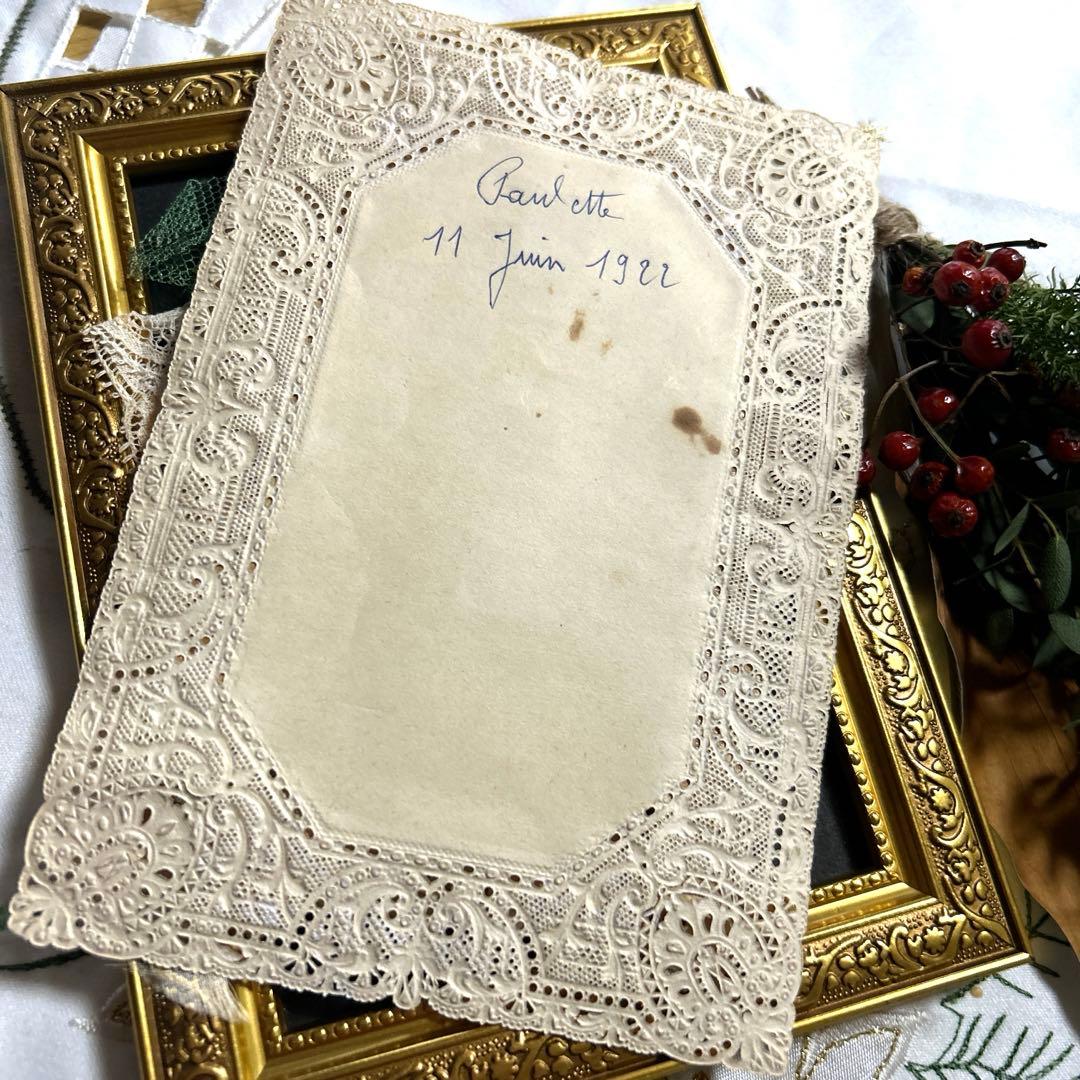 Paulette
11 Juin 1922